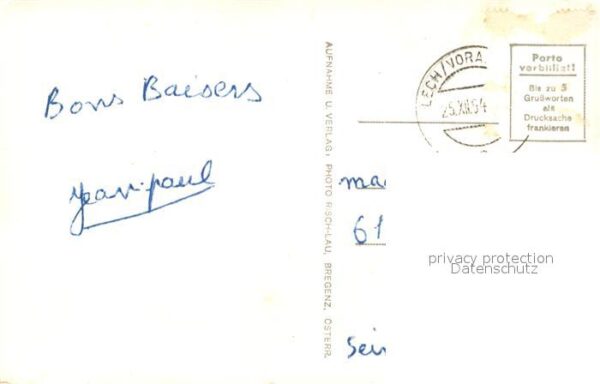 Bons Baisers
Jean-paul
AUFNAHME U. VERLAG: PHOTO RISCH-LAU, BREGENZ, ÖSTERR.
LECH/VORA
25.XII.54
Porto
verbilligt!
Bis zu 5
Grußworten
als
Drucksache
frankieren
ma
61
privacy protection
Datenschutz
Sei